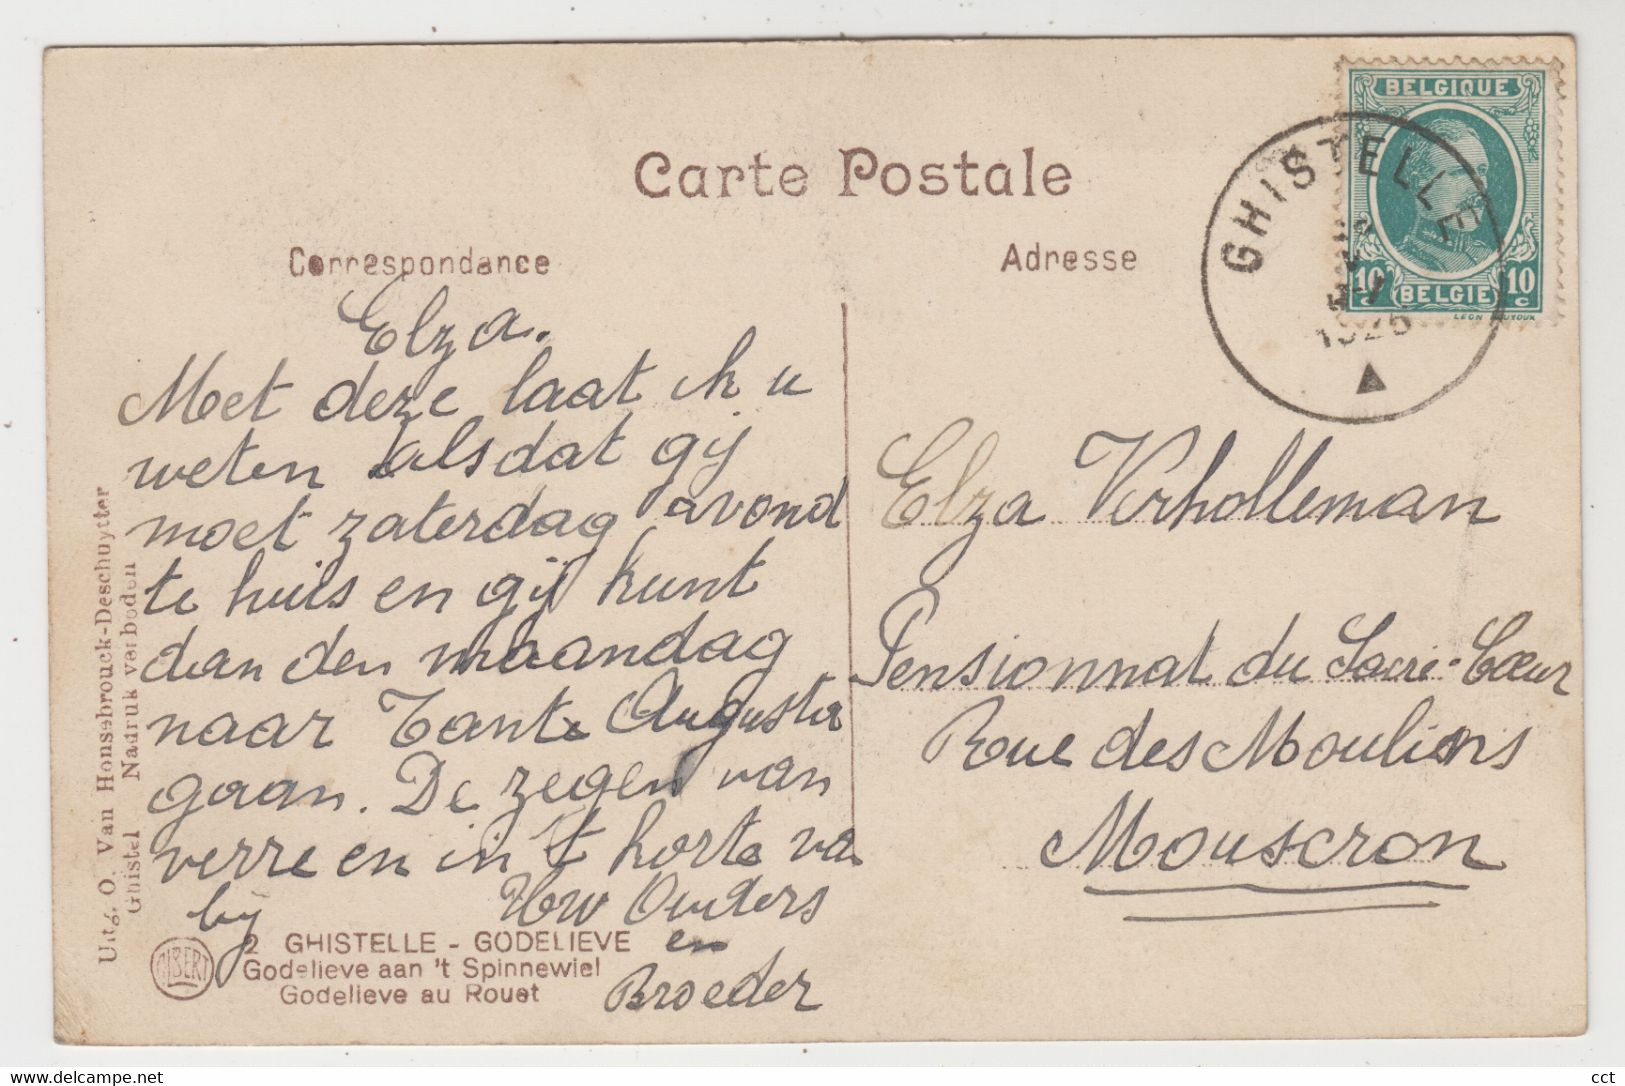 Carte Postale
Correspondance
Adresse
BELGIQUE
10 c BELGIE 10 c
GHISTELLE
Elza.
Met deze laat ik u
weten alsdat gij
moet zaterdag avond
te huis en gij kunt
dan den maandag
naar Tante Auguster
gaan. De zegen van
verre en in 't korte van
bij
Uw Ouders
en
Broeder
Elza Verholleman
Pensionnat du Sacré-Cœur
Rue des Moulions
Mouscron
Uitg. O. Van Honsebrouck-Deschuytter
Ghistel Nadruk verboden
ALBERT
2 GHISTELLE - GODELIEVE
Godelieve aan 't Spinnewiel
Godelieve au Rouet
cct